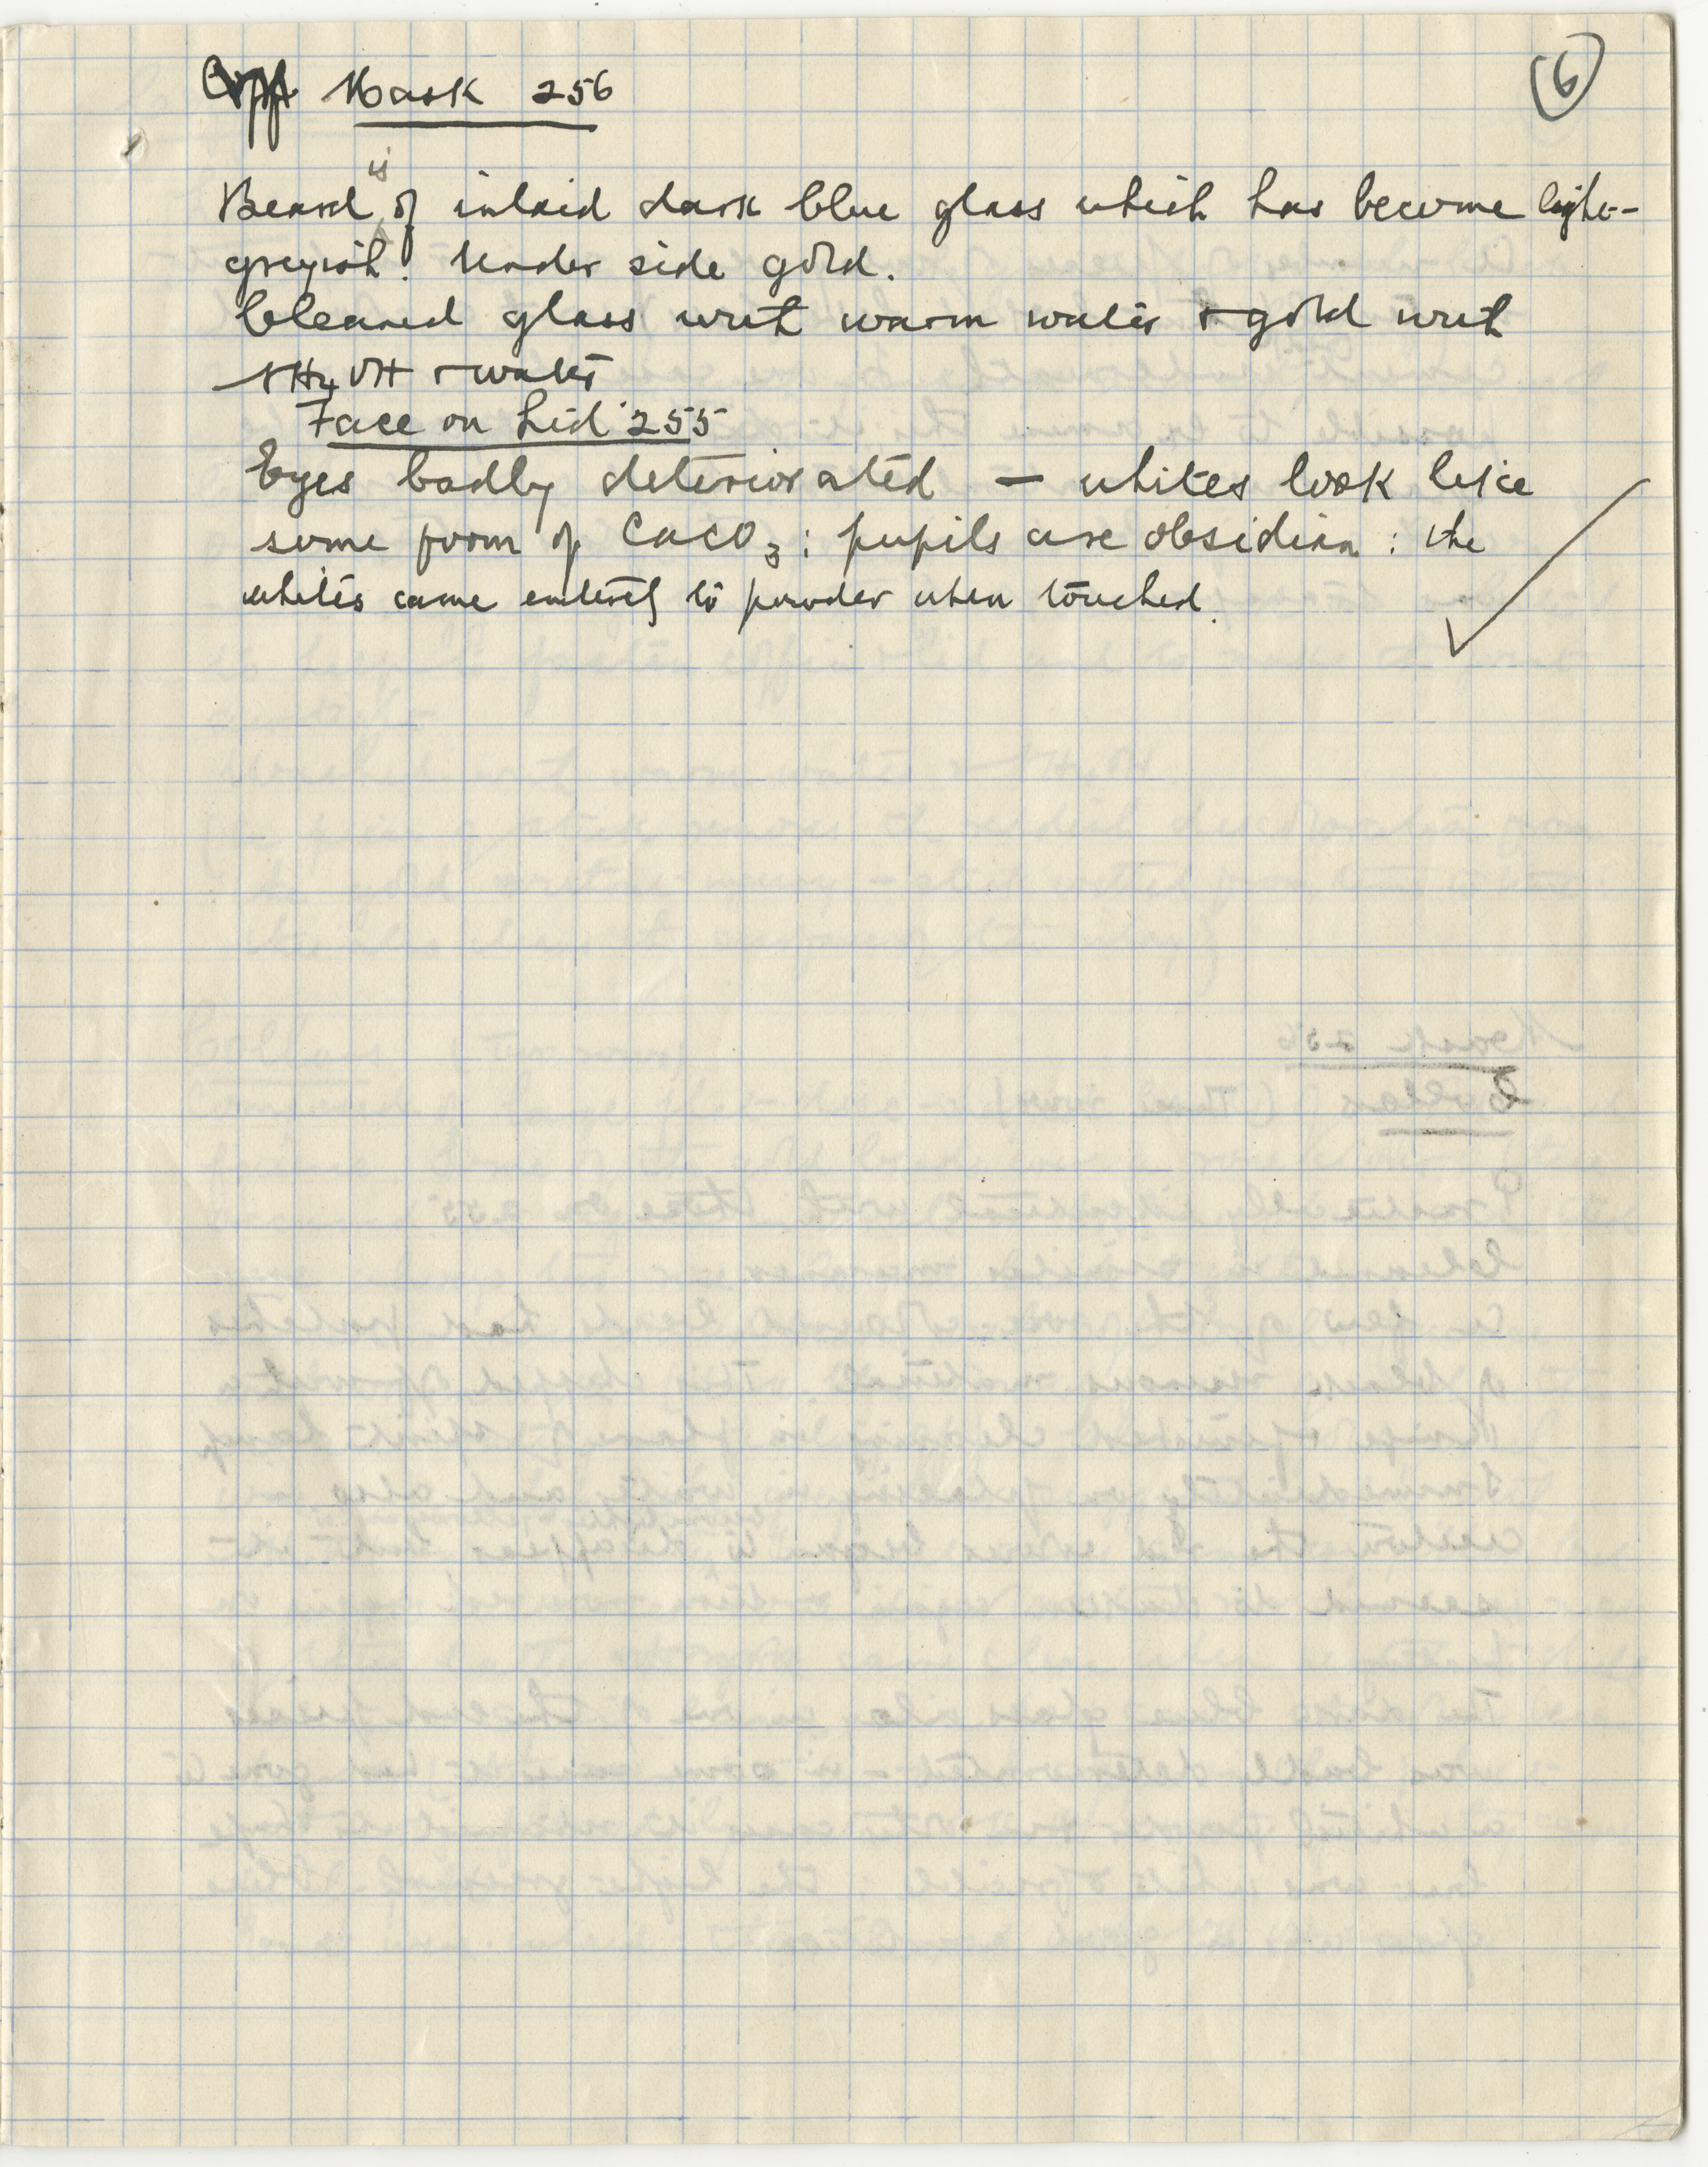 Mask 256
6
Beard is of inlaid dark blue glass which has become light-
greyish. Under side gold.
Cleaned glass with warm water & gold with
NH4OH & water
Face on Lid 255
Eyes badly deteriorated — whites look like
some form of CaCO3 : pupils are obsidian : the
whites came entirely to powder when touched.